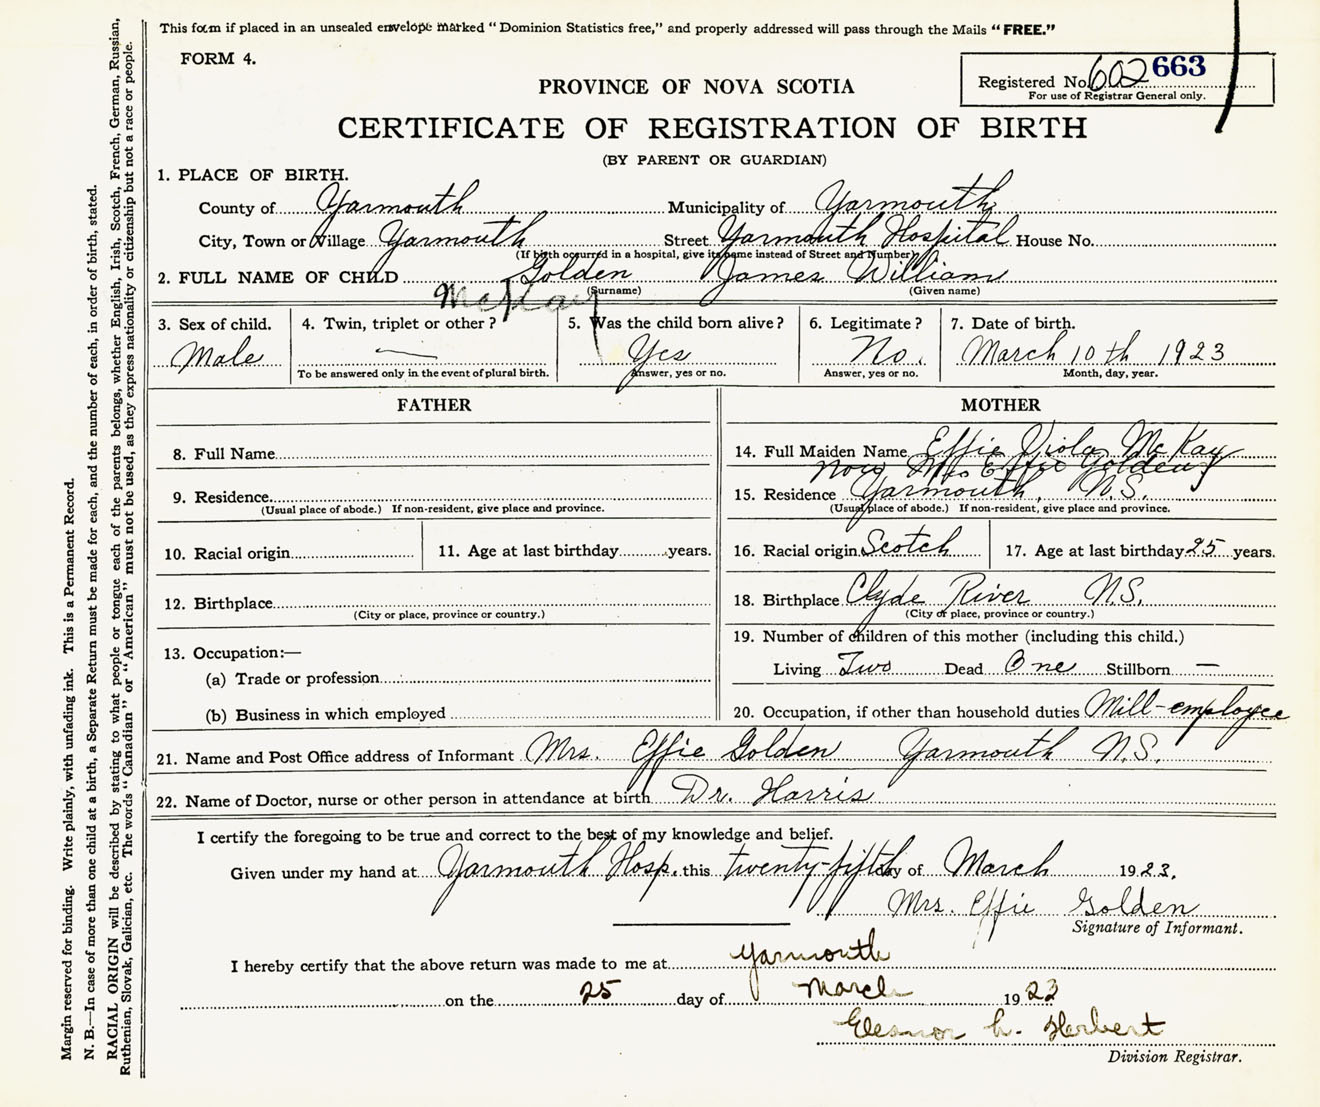 This form if placed in an unsealed envelope marked “Dominion Statistics free,” and properly addressed will pass through the Mails “FREE.”
FORM 4.
Registered No. 602 663
For use of Registrar General only.
PROVINCE OF NOVA SCOTIA
CERTIFICATE OF REGISTRATION OF BIRTH
(BY PARENT OR GUARDIAN)
1. PLACE OF BIRTH.
County of Yarmouth Municipality of Yarmouth
City, Town or Village Yarmouth Street Yarmouth Hospital House No.
(If birth occurred in a hospital, give its name instead of Street and Number)
2. FULL NAME OF CHILD Golden James William
McKay (Surname) (Given name)
3. Sex of child. 4. Twin, triplet or other? 5. Was the child born alive? 6. Legitimate? 7. Date of birth.
Male — Yes No. March 10th 1923
To be answered only in the event of plural birth. Answer, yes or no. Answer, yes or no. Month, day, year.
FATHER
8. Full Name
9. Residence.
(Usual place of abode.) If non-resident, give place and province.
10. Racial origin 11. Age at last birthday years.
12. Birthplace
(City or place, province or country.)
13. Occupation:—
(a) Trade or profession
(b) Business in which employed
MOTHER
14. Full Maiden Name Effie Viola McKay
now Mrs Effie Golden
15. Residence Yarmouth, N.S.
(Usual place of abode.) If non-resident, give place and province.
16. Racial origin Scotch 17. Age at last birthday 25 years.
18. Birthplace Clyde River N.S.
(City or place, province or country.)
19. Number of children of this mother (including this child.)
Living Two Dead One Stillborn —
20. Occupation, if other than household duties Mill-employee
21. Name and Post Office address of Informant Mrs. Effie Golden Yarmouth N.S.
22. Name of Doctor, nurse or other person in attendance at birth Dr. Harris
I certify the foregoing to be true and correct to the best of my knowledge and belief.
Given under my hand at Yarmouth Hosp. this twenty-fifth day of March 1923.
Mrs. Effie Golden
Signature of Informant.
I hereby certify that the above return was made to me at Yarmouth
on the 25 day of March 1923
Eleanor L. Herbert
Division Registrar.
Margin reserved for binding. Write plainly, with unfading ink. This is a Permanent Record.
N. B.—In case of more than one child at a birth, a Separate Return must be made for each, and the number of each, in order of birth, stated.
RACIAL ORIGIN will be described by stating to what people or tongue each of the parents belongs, whether English, Irish, Scotch, French, German, Russian,
Ruthenian, Slovak, Galician, etc. The words “Canadian” or “American” must not be used, as they express nationality or citizenship but not a race or people.